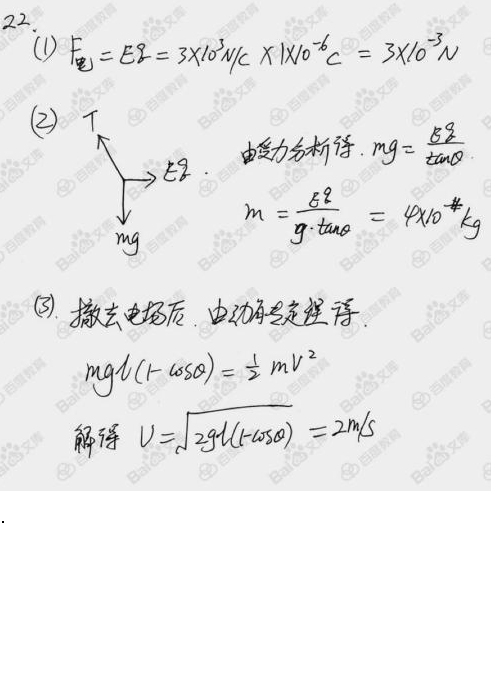 22.
(1) F电 = Eq = 3×10³N/C ×1×10⁻⁶C = 3×10⁻³N
(2) T
Eq.
mg
由受力分析得. mg = Eq/tanθ.
m = Eq/g·tanθ = 4×10⁻⁴kg
(3). 撤去电场后. 由动能定理得.
mgl(1-cosθ) = ½mV²
解得 V = √2gl(1-cosθ) = 2m/s
.